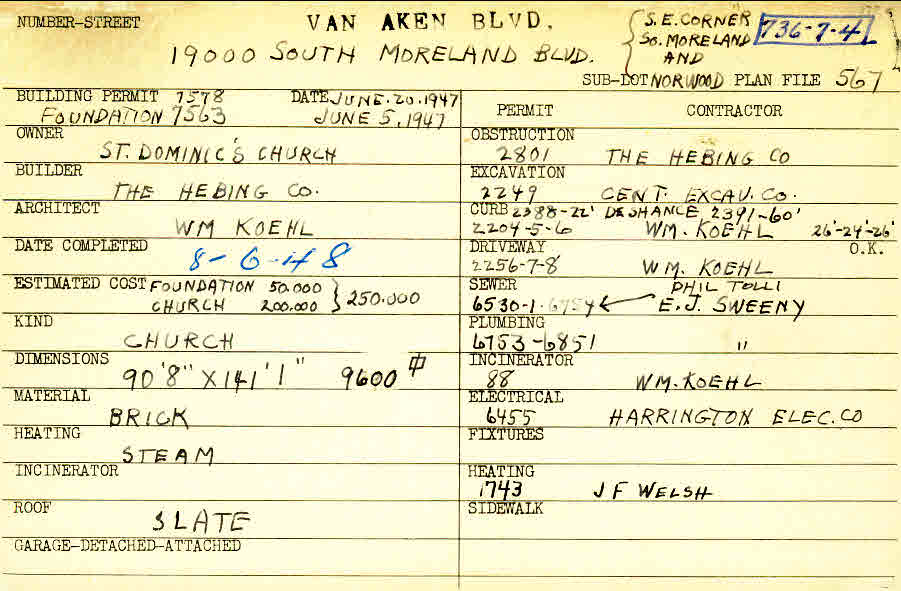 NUMBER-STREET VAN AKEN BLVD. S.E. CORNER 736-7-4
19000 SOUTH MORELAND BLVD. SO. MORELAND
AND
SUB-LOT NORWOOD PLAN FILE 567
BUILDING PERMIT 7578 DATE JUNE.20.1947
FOUNDATION 7563 JUNE 5.1947
OWNER
ST. DOMINIC'S CHURCH
BUILDER
THE HEBING CO.
ARCHITECT
WM KOEHL
DATE COMPLETED
8-6-48
ESTIMATED COST FOUNDATION 50.000
CHURCH 200.000 } 250.000
KIND
CHURCH
DIMENSIONS
90'8" X 141'1" 9600
MATERIAL
BRICK
HEATING
STEAM
INCINERATOR
ROOF
SLATE
GARAGE-DETACHED-ATTACHED
PERMIT CONTRACTOR
OBSTRUCTION
2801 THE HEBING CO
EXCAVATION
2249 CENT. EXCAV. CO.
CURB 2388-22' DESHANCE, 2391-60'
2204-5-6 WM. KOEHL 26'-24'-26'
DRIVEWAY O.K.
2256-7-8 WM. KOEHL
SEWER PHIL TOLLI
6530-1-6754 E.J. SWEENY
PLUMBING
6753-6851 "
INCINERATOR
88 WM. KOEHL
ELECTRICAL
6455 HARRINGTON ELEC. CO
FIXTURES
HEATING
1743 J F WELSH
SIDEWALK